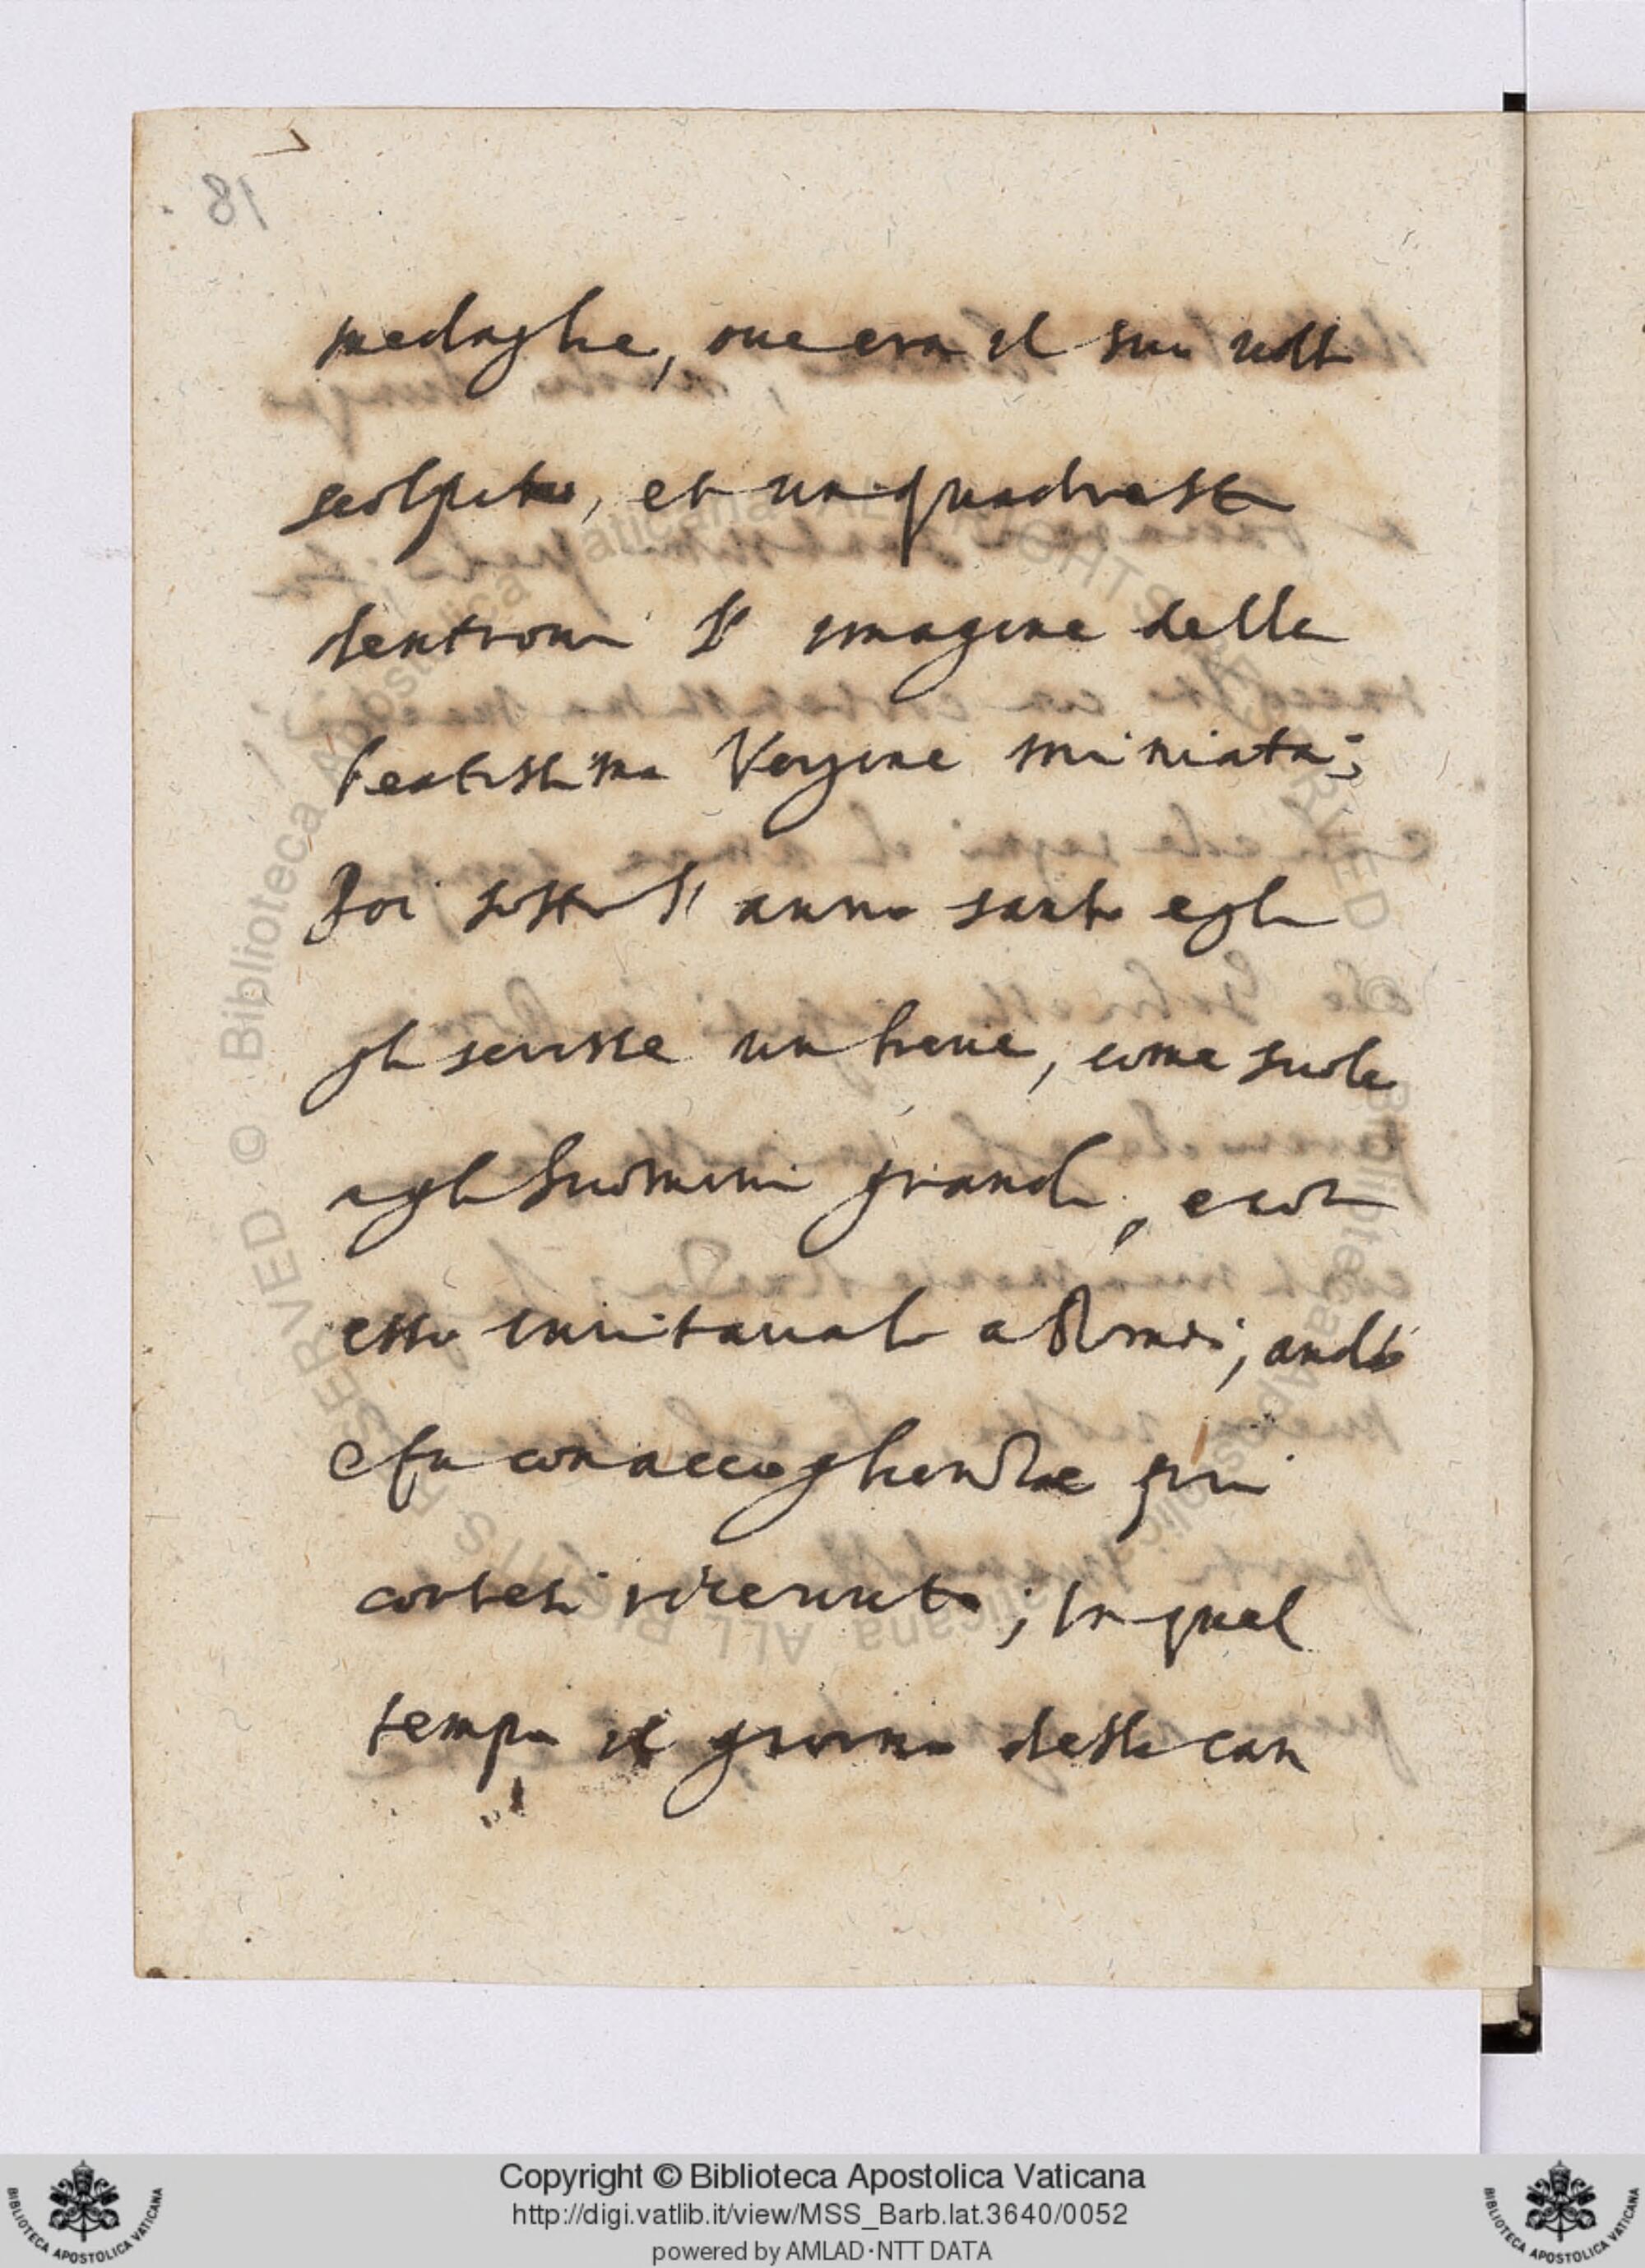 18
medaglie, oue era il suo uolto
scolpito, et un quadretto
dentroui l'imagine della
beatissima Vergine miniata;
Poi sotto l'anno santo egli
gli scrisse un breue, come suole
agli huomini grandi, e con
esso inuitaualo a Roma; andò
e fu con accoglienze più
cortesi riceuuto; In quel
tempo il giorno della can
© Biblioteca Apostolica Vaticana ALL RIGHTS RESERVED
Copyright © Biblioteca Apostolica Vaticana
http://digi.vatlib.it/view/MSS_Barb.lat.3640/0052
powered by AMLAD·NTT DATA
BIBLIOTECA APOSTOLICA VATICANA
BIBLIOTECA APOSTOLICA VATICANA